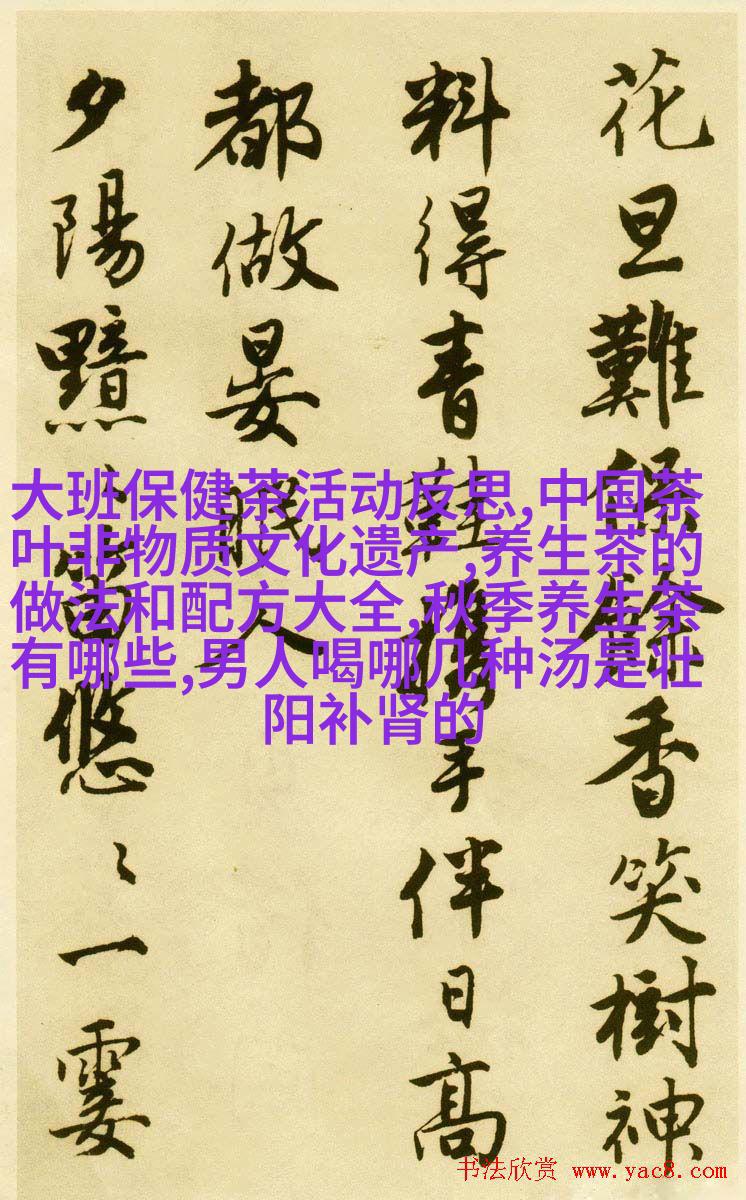 花旦難保餘香笑樹神
料得青鞋攜手伴日高
都做晏眠人
夕陽黯〻笛悠〻一霎
大班保健茶活动反思,中国茶
叶非物质文化遗产,养生茶的
做法和配方大全,秋季养生茶
有哪些,男人喝哪几种汤是壮
阳补肾的
书法欣赏 www.yac8.com